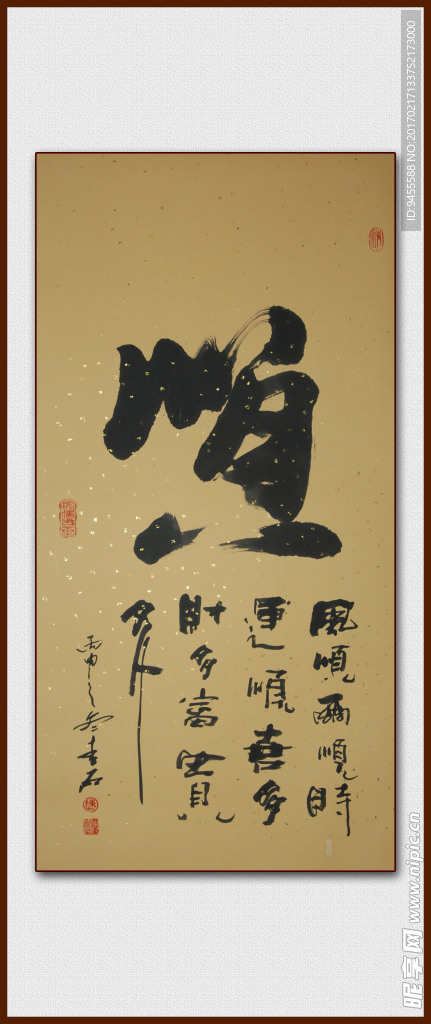 順
風順雨順時
運順喜多
財多富貴
多
丙申之冬
ID:9455588 NO:20170217133752173000
昵享网 www.nipic.cn